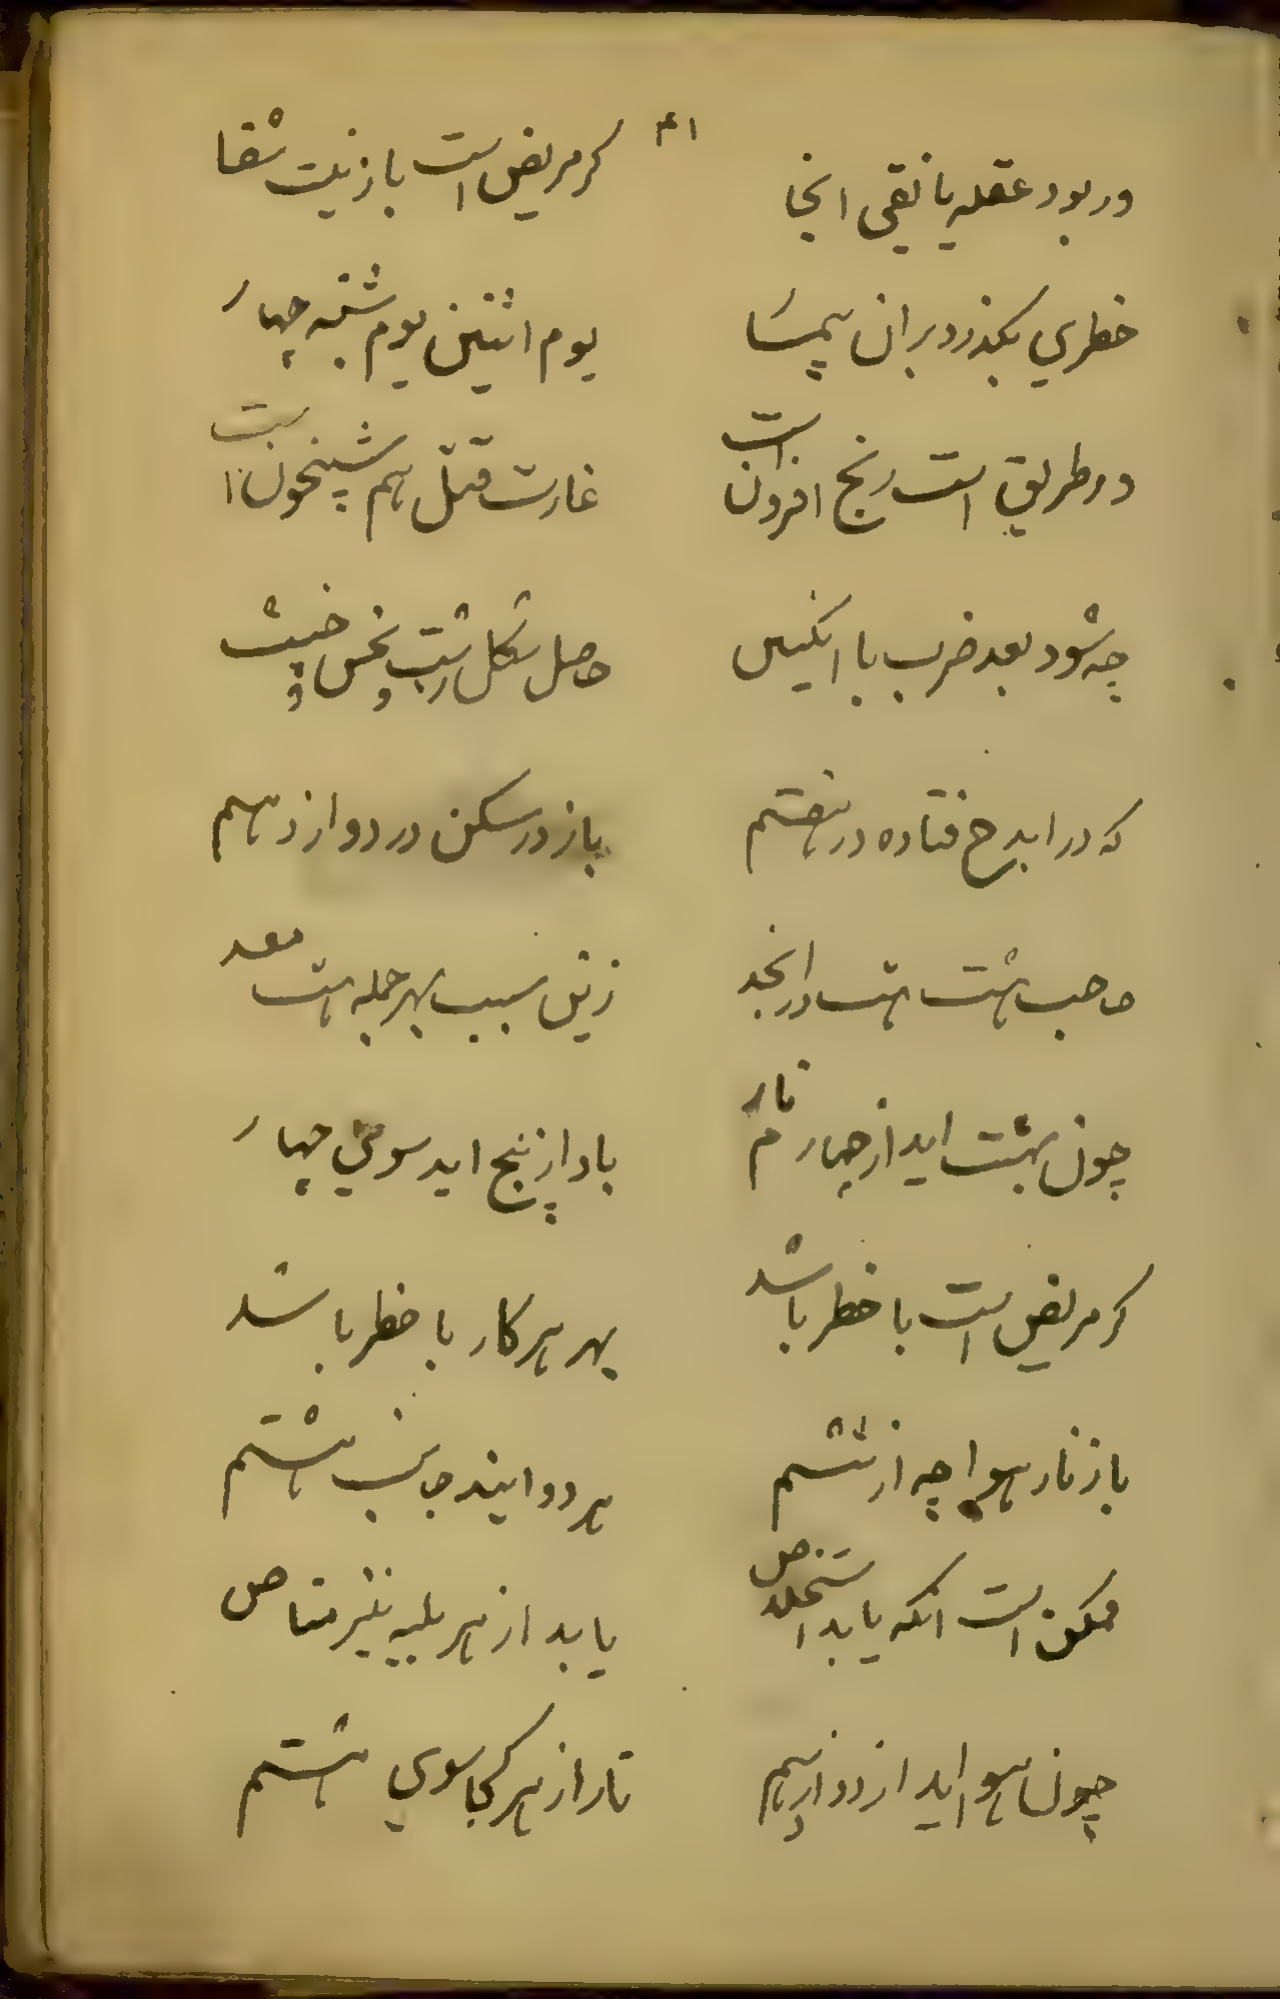 ۴۱
وربود عقله یا نقی انجا
کر مریض است باز نیت شفا
خطری بکذرد بران بیمار
یوم اثنین یوم شنبه چهار
در طریق است رنج افزون است
غارت قتل هم شبخون است
چه شود بعد ضرب با انکیس
حاصل شکل زشت و نحس و خبیث
که در ابدح فتاده در هفتم
باز در سکن در دوازدهم
صاحب هشت هست در ابجد
زین سبب بهر جمله هست معد
چون بهشت اید از چهارم نار
باد از پنج اید سوی چهار
کر مریض است با خطر باشد
بهر هر کار با خطر باشد
باز نار هوا چه از ششم
هر دو ایند جانب هشتم
ممکن است انکه یابد استخلاص
یابد از هر بلیه نیز مناص
چون هوا اید از دوازدهم
نار از هر کجا سوی هشتم